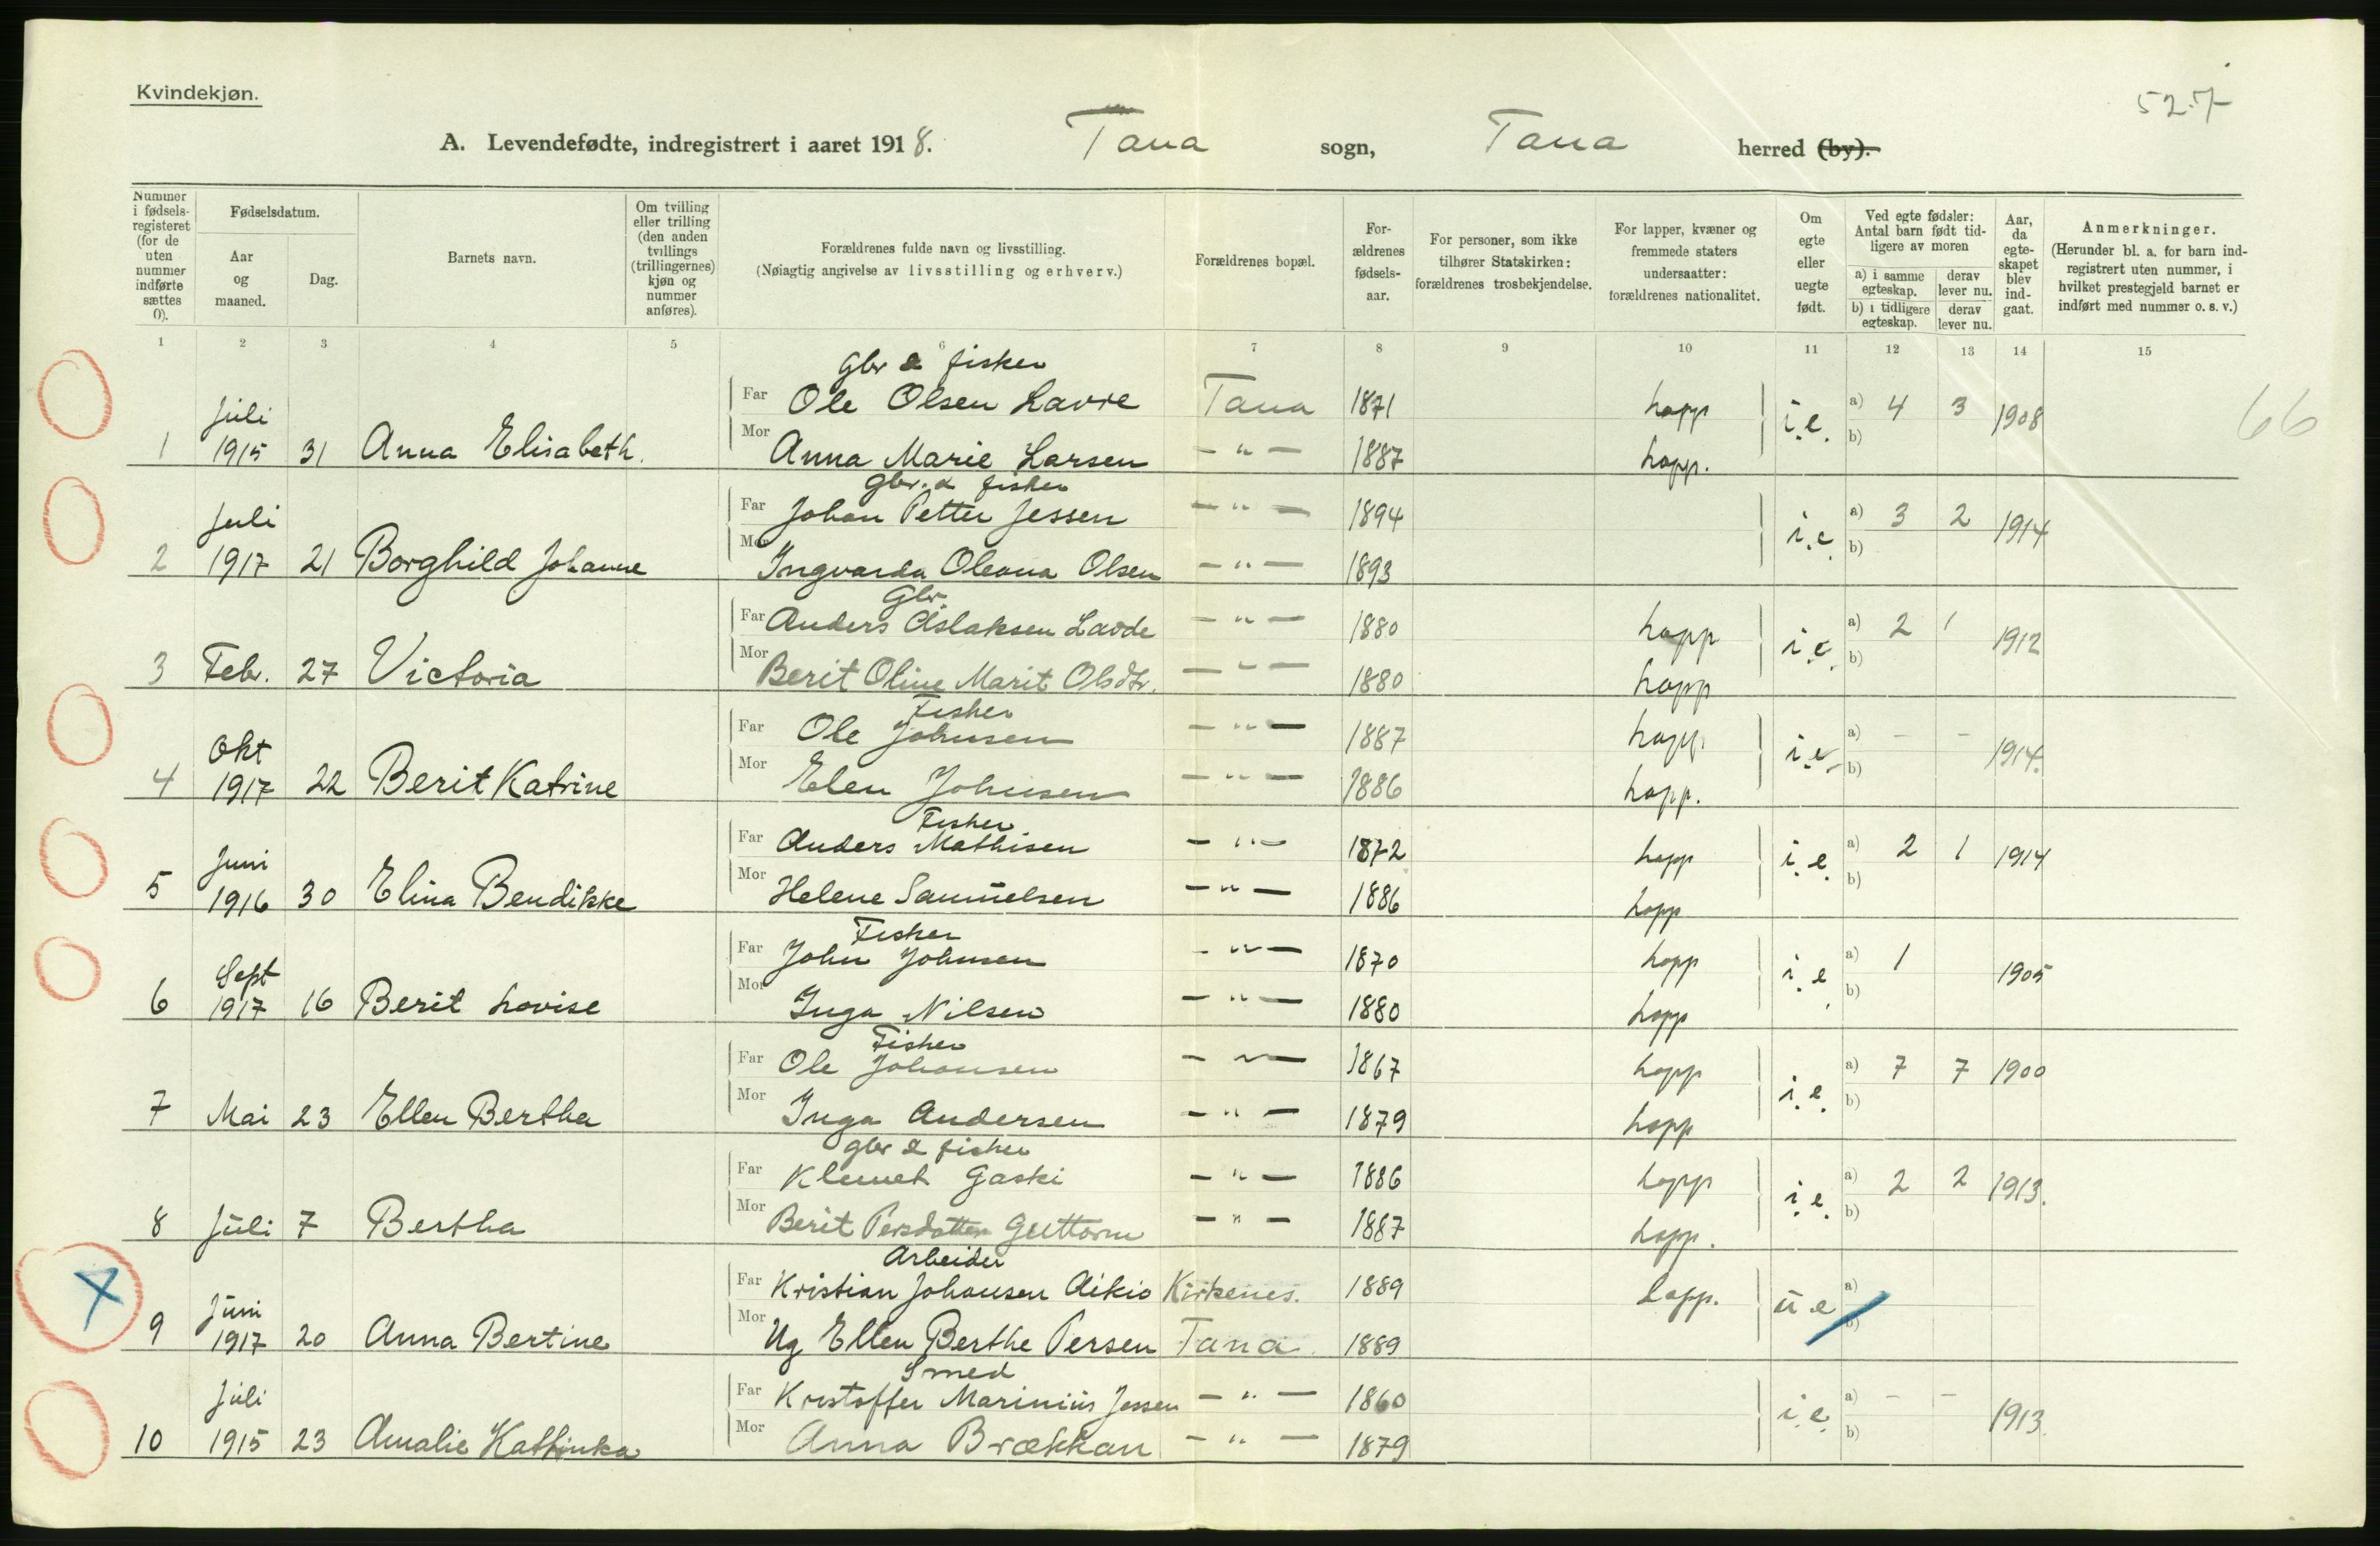 Kvindekjøn.
527
A. Levendefødte, indregistrert i aaret 1918. Tana sogn, Tana herred (by).
Nummer i fødselsregisteret (for de uten nummer indførte sættes 0).
Fødselsdatum.
Aar og maaned.
Dag.
Barnets navn.
Om tvilling eller trilling (den anden tvillings (trillingernes) kjøn og nummer anføres).
Forældrenes fulde navn og livsstilling.
(Nøiagtig angivelse av livsstilling og erhverv.)
Forældrenes bopæl.
Forældrenes fødselsaar.
For personer, som ikke tilhører Statskirken: forældrenes trosbekjendelse.
For lapper, kvæner og fremmede staters undersaatter: forældrenes nationalitet.
Om egte eller uegte født.
Ved egte fødsler: Antal barn født tidligere av moren
a) i samme egteskap. derav lever nu.
b) i tidligere egteskap. derav lever nu.
Aar, da egteskapet blev indgaat.
Anmerkninger.
(Herunder bl. a. for barn indregistrert uten nummer, i hvilket prestegjeld barnet er indført med nummer o. s. v.)
1 2 3 4 5 6 7 8 9 10 11 12 13 14 15
66
Gbr & fisker
Juli Far Ole Olsen Lavre Tana 1871 lapp i.e. a) 4 3 1908
1 1915 31 Anna Elisabeth. Mor Anna Marie Larsen - " - 1887 lapp. b)
Gbr. & fisker
Juli Far Johan Petter Jessen - " - 1894 i.e. a) 3 2 1914
2 1917 21 Borghild Johanne Mor Ingvarda Oleana Olsen - " - 1893 b)
Gbr.
Far Anders Aslaksen Lavde - " - 1880 lapp i.e. a) 2 1 1912
3 Febr. 27 Victoria Mor Berit Oline Marit Olsdtr. - " - 1880 lapp b)
Fisker
Okt Far Ole Johnsen - " - 1887 lapp. i.e. a) - - 1914.
4 1917 22 Berit Katrine Mor Elen Johnsen - " - 1886 lapp. b)
Fisker
Juni Far Anders Mathisen - " - 1872 lapp i.e. a) 2 1 1914
5 1916 30 Elina Bendikke Mor Helene Samuelsen - " - 1886 lapp b)
Fisker
Sept Far John Johnsen - " - 1870 lapp i.e. a) 1 1905
6 1917 16 Berit Lovise Mor Inga Nilsen - " - 1880 lapp b)
Fisker
Far Ole Johansen - " - 1867 lapp i.e. a) 7 7 1900
7 Mai 23 Ellen Bertha Mor Inga Andersen - " - 1879 lapp b)
gbr & fisker
Far Klemet Gaski - " - 1886 lapp i.e. a) 2 2 1913.
8 Juli 7 Bertha Mor Berit Persdatter Guttorm - " - 1887 lapp. b)
Arbeider
Juni Far Kristian Johansen Aikio Kirkenes. 1889 lapp. u.e a)
9 1917 20 Anna Bertine Mor Ug Ellen Berthe Persen Tana 1889 b)
Smed
Juli Far Kristoffer Marinius Jessen - " - 1860 i.e. a) - - 1913.
10 1915 23 Amalie Kathinka Mor Anna Brækkan - " - 1879 b)